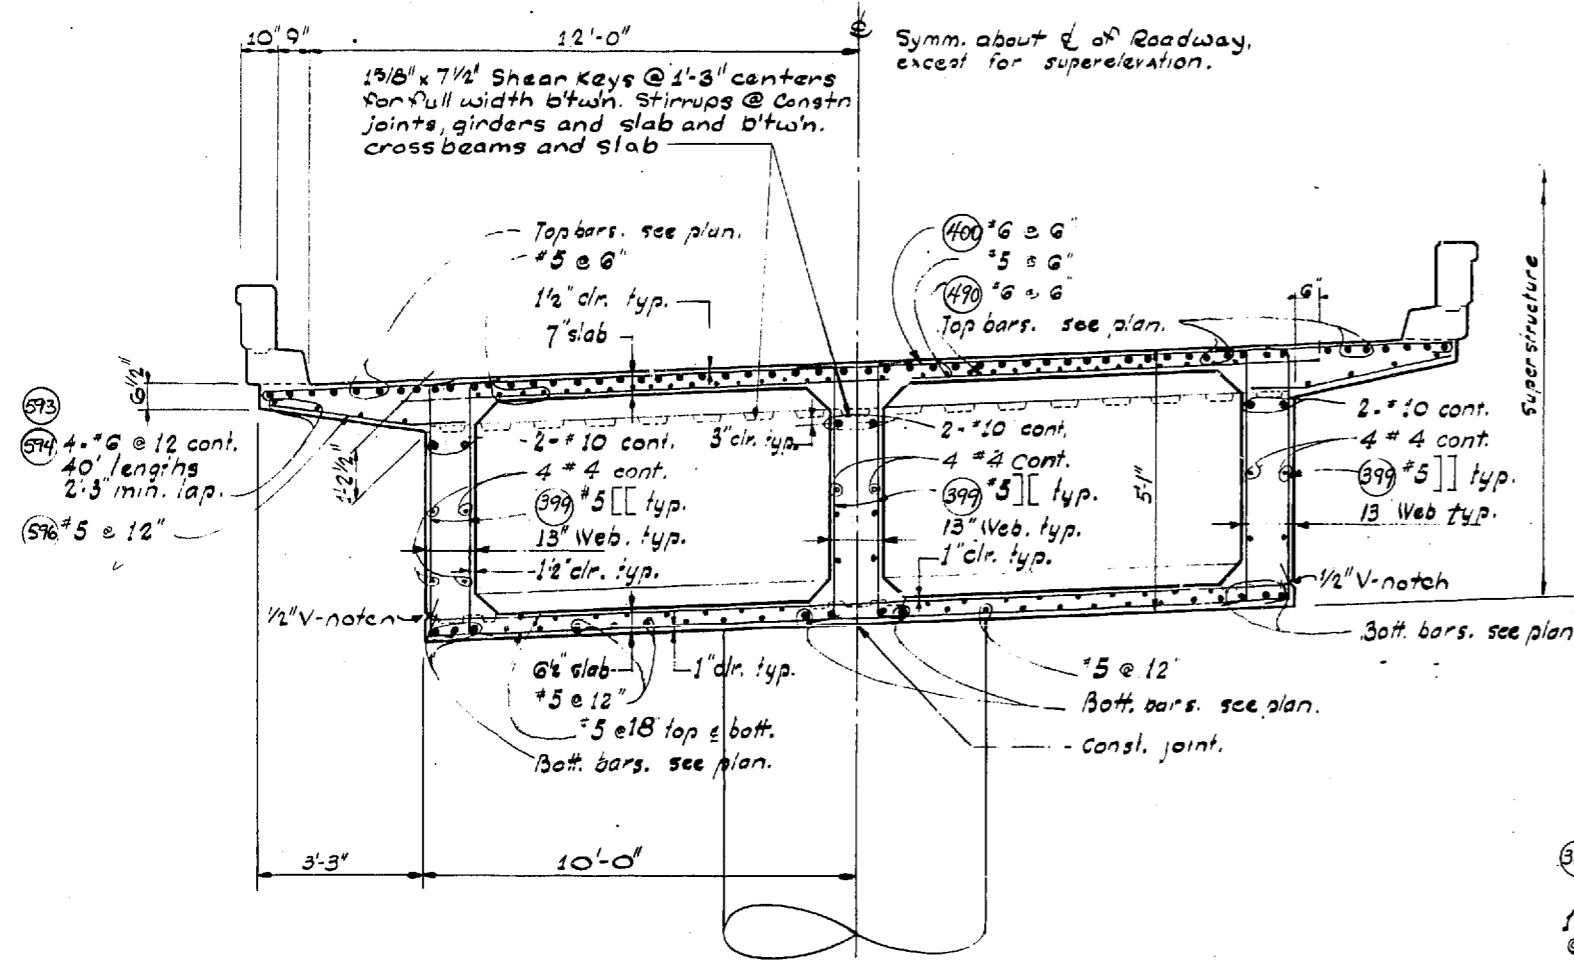 10" 9"
12'-0"
℄
Symm. about ℄ of Roadway,
except for superelevation.
15/8" x 7 1/2" Shear Keys @ 1'-3" centers
for full width b'tw'n. Stirrups @ Constn
joints, girders and slab and b'tw'n.
crossbeams and slab
Top bars. see plan.
#5 @ 6"
1 1/2" clr. typ.
7" slab
400 #6 @ 6"
#5 @ 6"
490 #6 @ 6"
Top bars. see plan.
6"
Superstructure
6 1/2"
593
594 4-#6 @ 12 cont.
40' lengths
2'-3" min. lap.
596 #5 @ 12"
1'-2 1/2"
2-#10 cont.
4 #4 cont.
399 #5 [[ typ.
13" Web. typ.
1 1/2" clr. typ.
3" clr. typ.
2-#10 cont.
4 #4 cont.
399 #5 ][ typ.
13" Web. typ.
1" clr. typ.
5'-1"
2-#10 cont.
4 #4 cont.
399 #5 ]] typ.
13 Web typ.
1/2" V-notch
1/2" V-notch
Bott. bars. see plan
6 1/2" slab
1" clr. typ.
#5 @ 12"
#5 @ 18 top & bott.
Bott. bars. see plan.
#5 @ 12"
Bott. bars. see plan.
Const. joint.
3'-3"
10'-0"